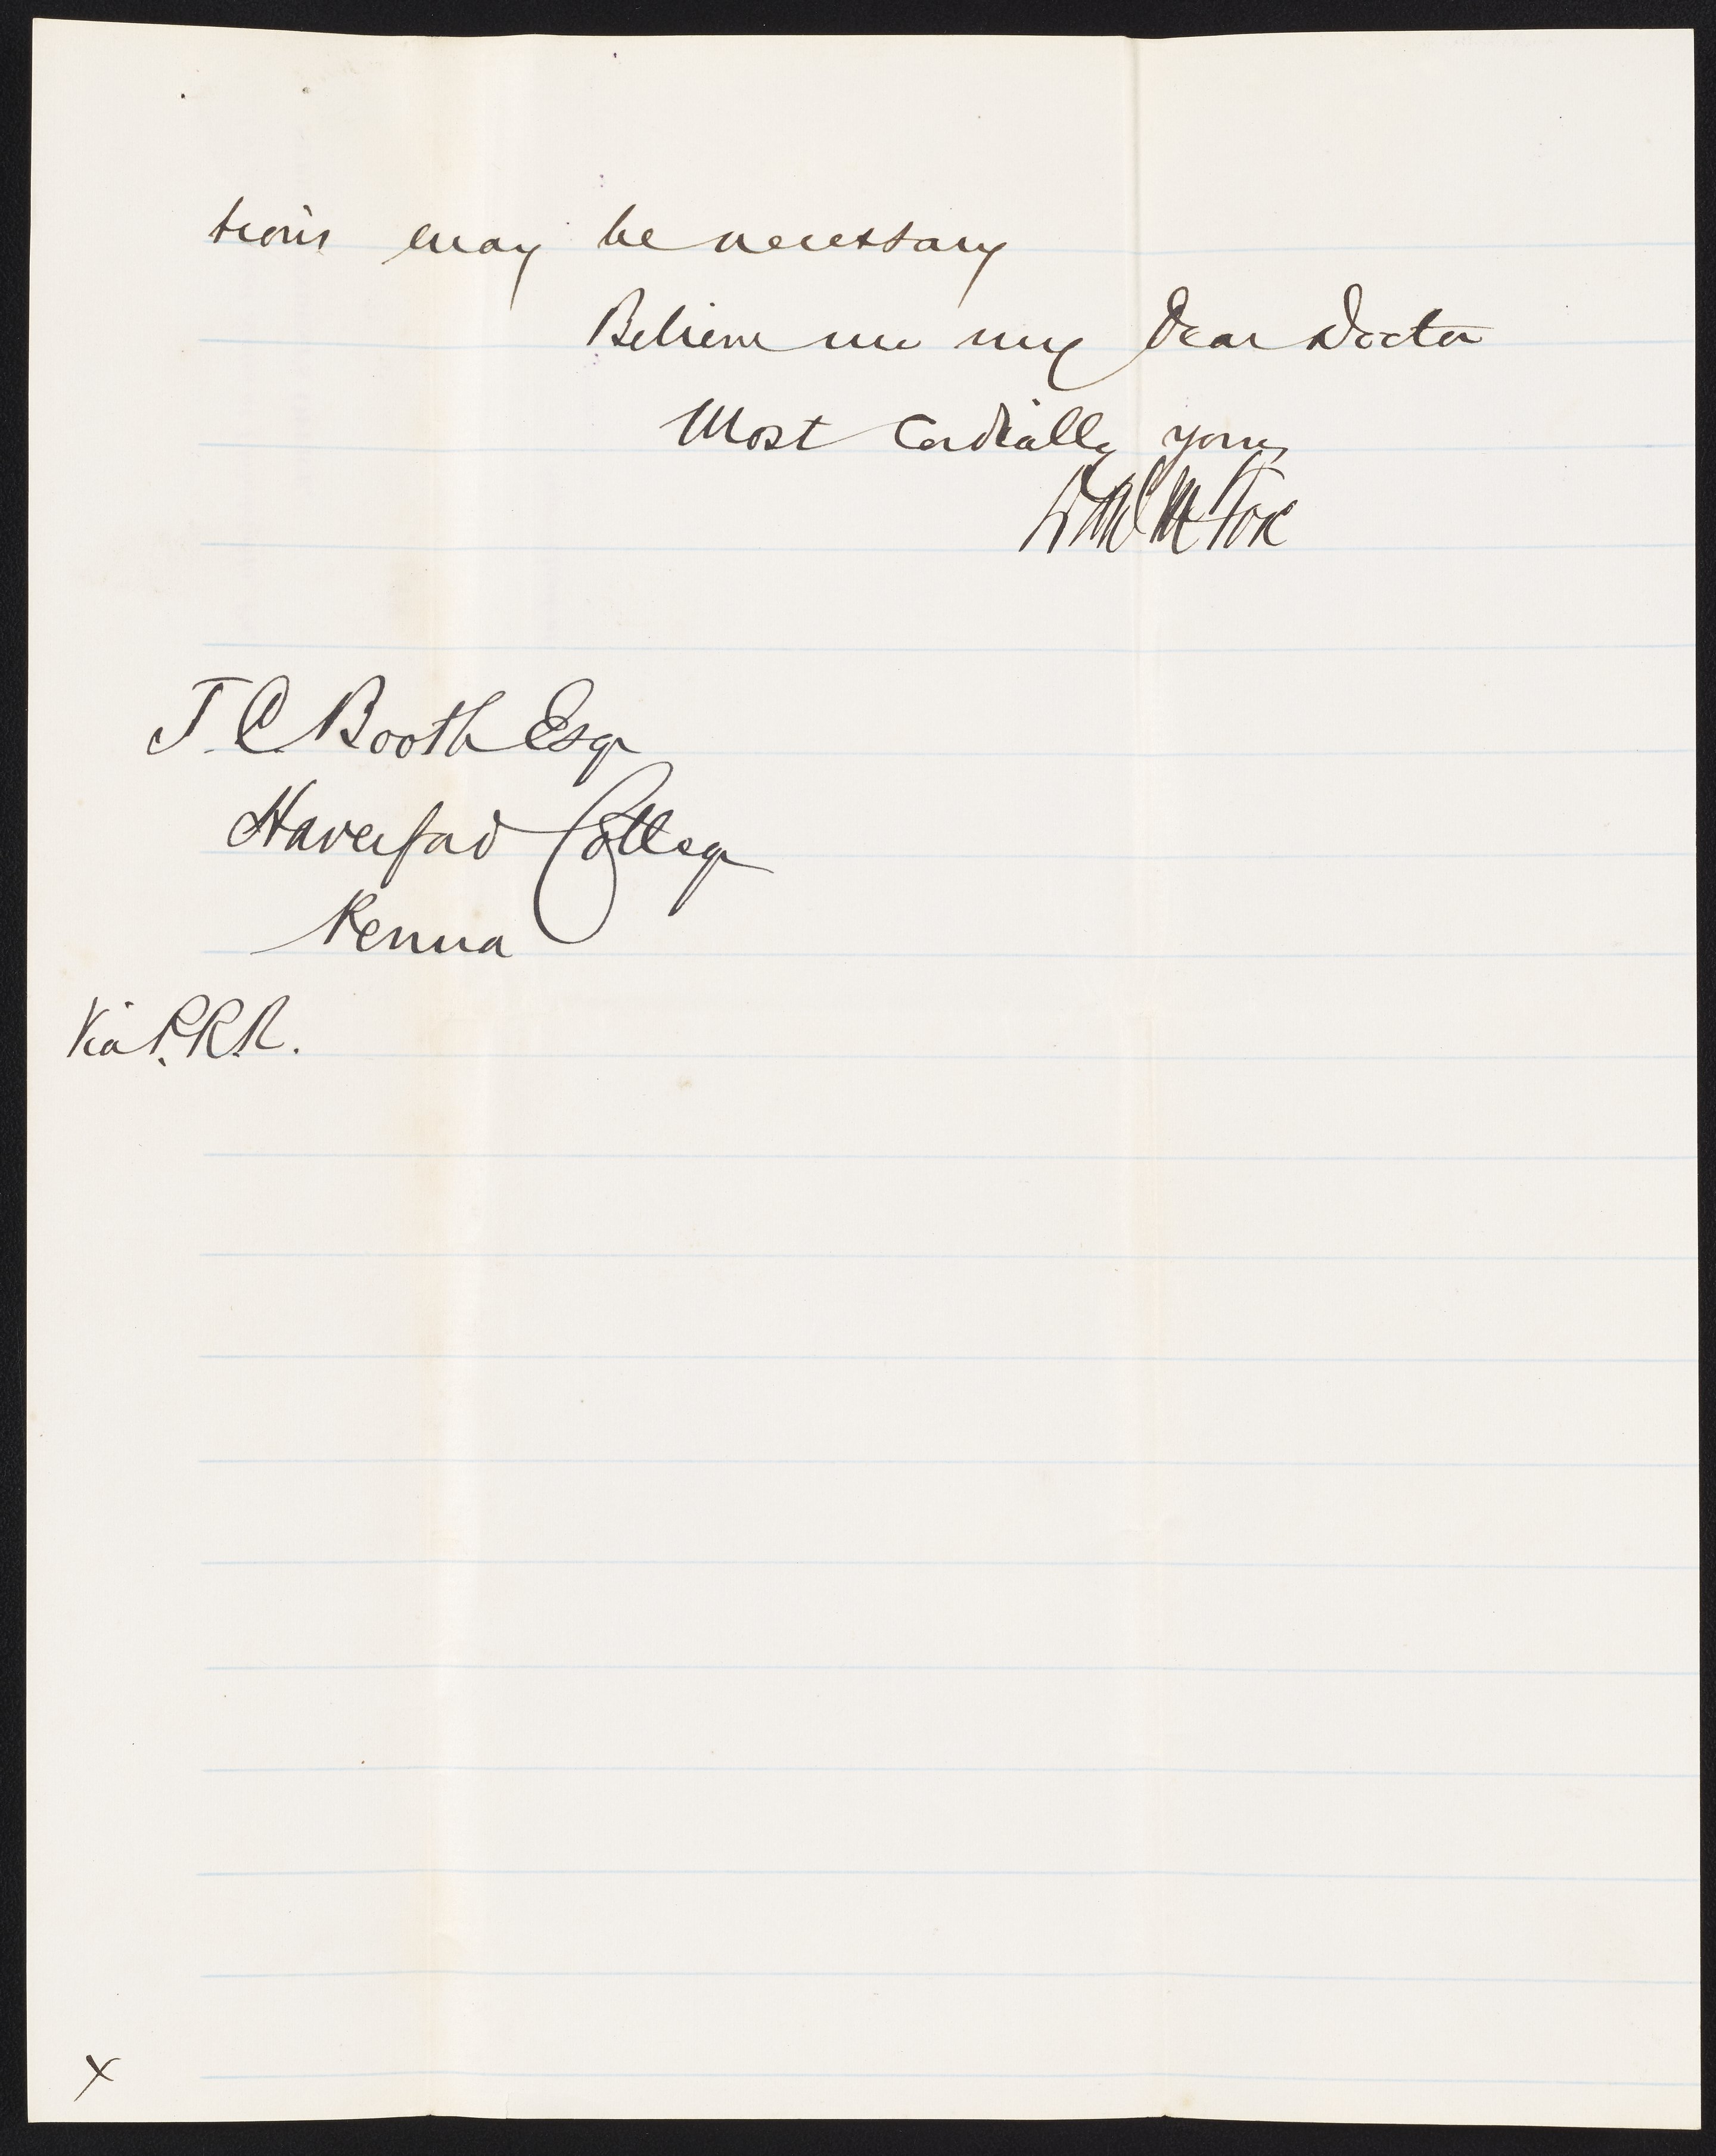 tions may be necessary
Believe me my Dear Doctor
Most Cordially yours
Danl M Fox
J. C. Booth Esqr
Haverford College
Penna
Via P.R.R.
x